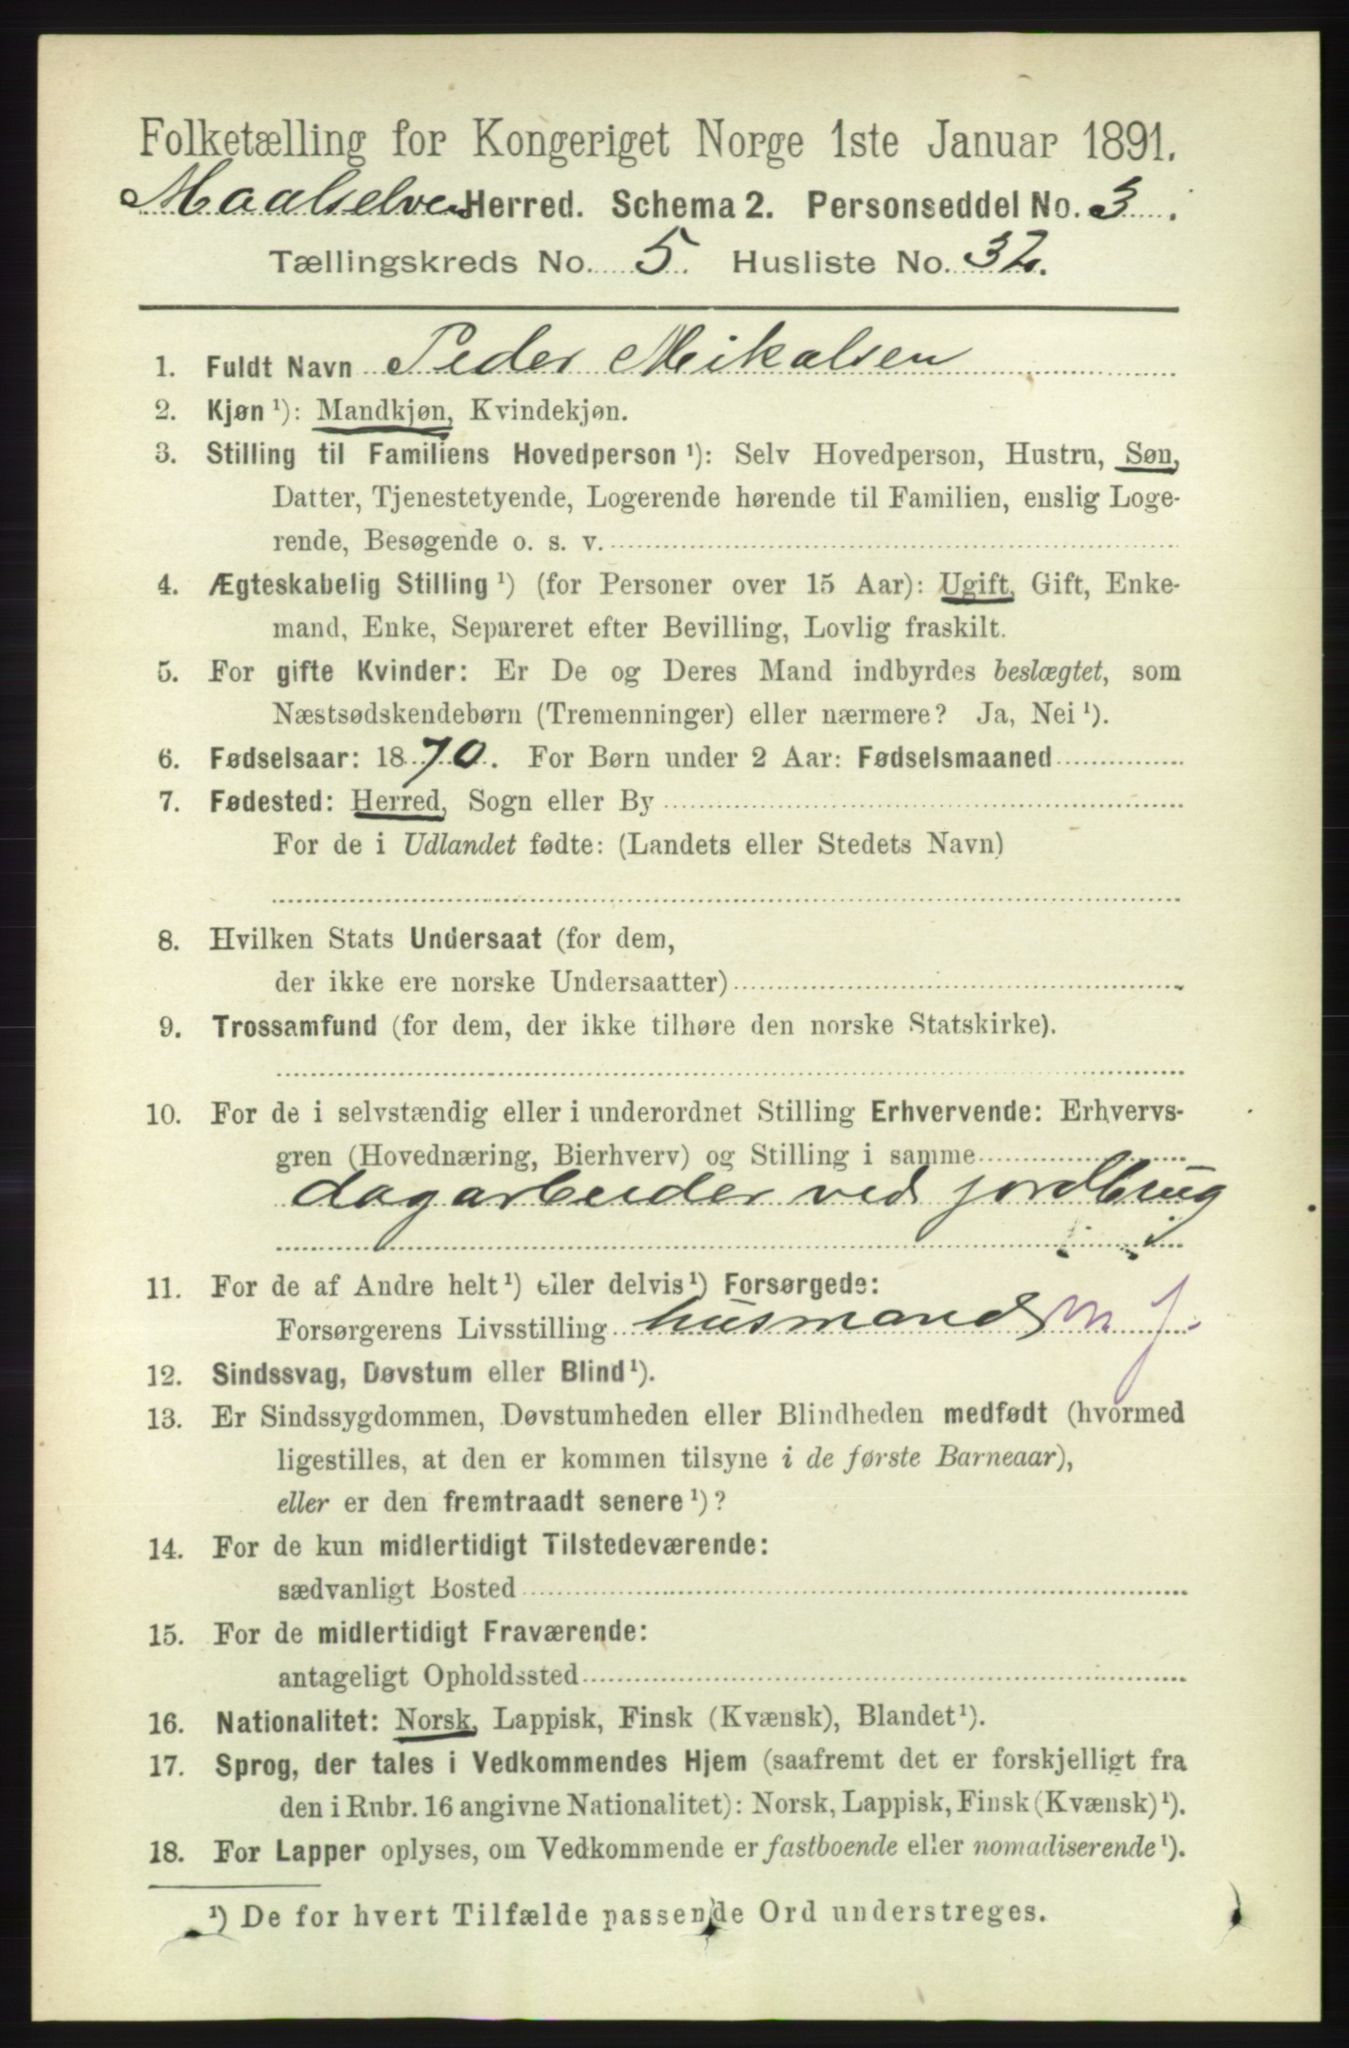 Folketælling for Kongeriget Norge 1ste Januar 1891.
Maalselvens Herred. Schema 2. Personseddel No. 3.
Tællingskreds No. 5. Husliste No. 32.
1. Fuldt Navn Peder Mikalsen
2. Kjøn ¹): Mandkjøn, Kvindekjøn.
3. Stilling til Familiens Hovedperson ¹): Selv Hovedperson, Hustru, Søn,
Datter, Tjenestetyende, Logerende hørende til Familien, enslig Loge-
rende, Besøgende o. s. v.
4. Ægteskabelig Stilling ¹) (for Personer over 15 Aar): Ugift, Gift, Enke-
mand, Enke, Separeret efter Bevilling, Lovlig fraskilt.
5. For gifte Kvinder: Er De og Deres Mand indbyrdes beslægtet, som
Næstsødskendebørn (Tremenninger) eller nærmere? Ja, Nei ¹).
6. Fødselsaar: 1870. For Børn under 2 Aar: Fødselsmaaned
7. Fødested: Herred, Sogn eller By
For de i Udlandet fødte: (Landets eller Stedets Navn)
8. Hvilken Stats Undersaat (for dem,
der ikke ere norske Undersaatter)
9. Trossamfund (for dem, der ikke tilhøre den norske Statskirke).
10. For de i selvstændig eller i underordnet Stilling Erhvervende: Erhvervs-
gren (Hovednæring, Bierhverv) og Stilling i samme
dagarbeider ved jordbrug
11. For de af Andre helt ¹) eller delvis ¹) Forsørgede:
Forsørgerens Livsstilling husmand m. J.
12. Sindssvag, Døvstum eller Blind ¹).
13. Er Sindssygdommen, Døvstumheden eller Blindheden medfødt (hvormed
ligestilles, at den er kommen tilsyne i de første Barneaar),
eller er den fremtraadt senere ¹)?
14. For de kun midlertidigt Tilstedeværende:
sædvanligt Bosted
15. For de midlertidigt Fraværende:
antageligt Opholdssted
16. Nationalitet: Norsk, Lappisk, Finsk (Kvænsk), Blandet ¹).
17. Sprog, der tales i Vedkommendes Hjem (saafremt det er forskjelligt fra
den i Rubr. 16 angivne Nationalitet): Norsk, Lappisk, Finsk (Kvænsk) ¹).
18. For Lapper oplyses, om Vedkommende er fastboende eller nomadiserende ¹).
¹) De for hvert Tilfælde passende Ord understreges.